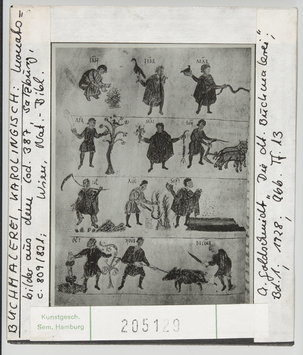 BUCHMALEREI, KAROLINGISCH: Monats-
bilder aus dem Cod. 387, Salzburg,
c. 809/821; Wien, Nat.-Bibl.
IAN
FEB
MAR
APR
MAI
IUL
SEPT
OCT
A. Goldschmidt "Die dt. Buchmalerei",
Bd. 1, 1928, Abb. T. 13
Kunstgesch.
Sem. Hamburg
205129